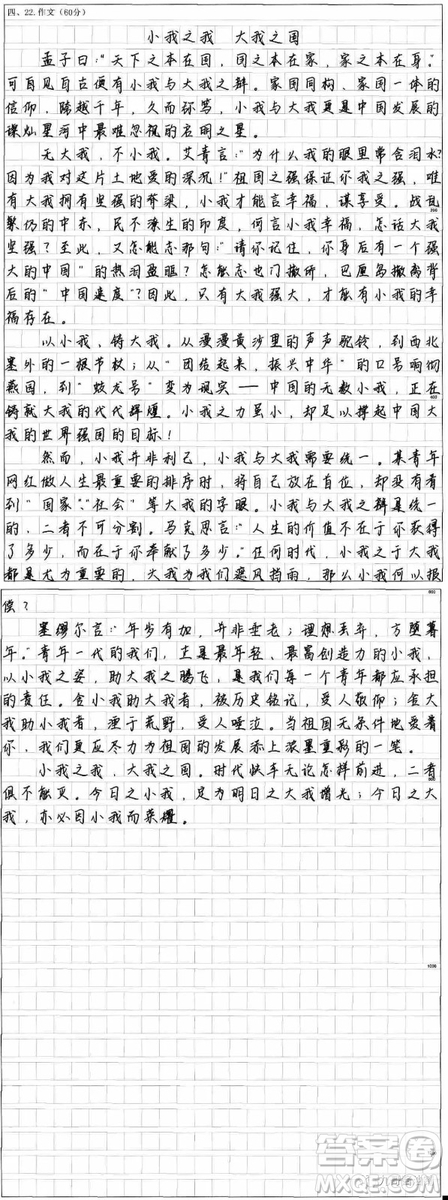 四、22.作文(60分)
小我之我 大我之国
孟子曰:“天下之本在国,国之本在家,家之本在身。”
可自见自古便有小我与大我之辩。家国同构、家国一体的
信仰,跨越千年,久而弥笃,小我与大我更是中国发展的
璨灿星河中最难忽视的启明之星。
无大我,不小我。艾青言:“为什么我的眼里常含泪水?
因为我对这片土地爱的深沉!”祖国之强保证你我之强,唯
有大我拥有坚强的脊梁,小我才能言幸福,谋享受。战乱
频仍的中东,民不潦生的印度,何言小我幸福,怎话大我
坚强?至此,又怎能忘那句:“请你记住,你身后有一个强
大的中国”的热泪盈眶?怎能忘也门撤侨,巴厘岛撤离背
后的“中国速度”?因此,只有大我强大,才能有小我的幸
福存在。
以小我,铸大我。从漫漫黄沙里的声声驼铃,到西北
塞外的一根节杖;从“团结起来,振兴中华”的口号响彻
燕园,到“蛟龙号”变为现实——中国的无数小我,正在
铸就大我的代代辉煌。小我之力虽小,却足以撑起中国大
我的世界强国的目标!
然而,小我并非利己,小我与大我需要统一。某青年
网红做人生最重要的排序时,将自己放在首位,却没有看
到“国家”、“社会”等大我的字眼。小我与大我之辩是统一
的,二者不可分割。马克思言:“人生的价值不在于你获得
了多少,而在于你奉献了多少。”任何时代,小我之于大我
都是尤为重要的,大我为我们遮风挡雨,那么小我何以报
偿?
塞缪尔言:“年岁有加,并非垂老;理想丢弃,方堕暮
年。”青年一代的我们,正是最年轻、最富创造力的小我,
以小我之姿,助大我之腾飞,是我们每一个青年都应承担
的责任。舍小我助大我者,被历史铭记,受人敬仰;舍大
我助小我者,湮于荒野,受人唾泣。当祖国无条件地爱着
你,我们更应尽力为祖国的发展添上浓墨重彩的一笔。
小我之我,大我之国。时代快车无论怎样前进,二者
俱不能灭。今日之小我,足为明日之大我增光;今日之大
我,亦必因小我而荣耀。
答案圈
MXQE.COM